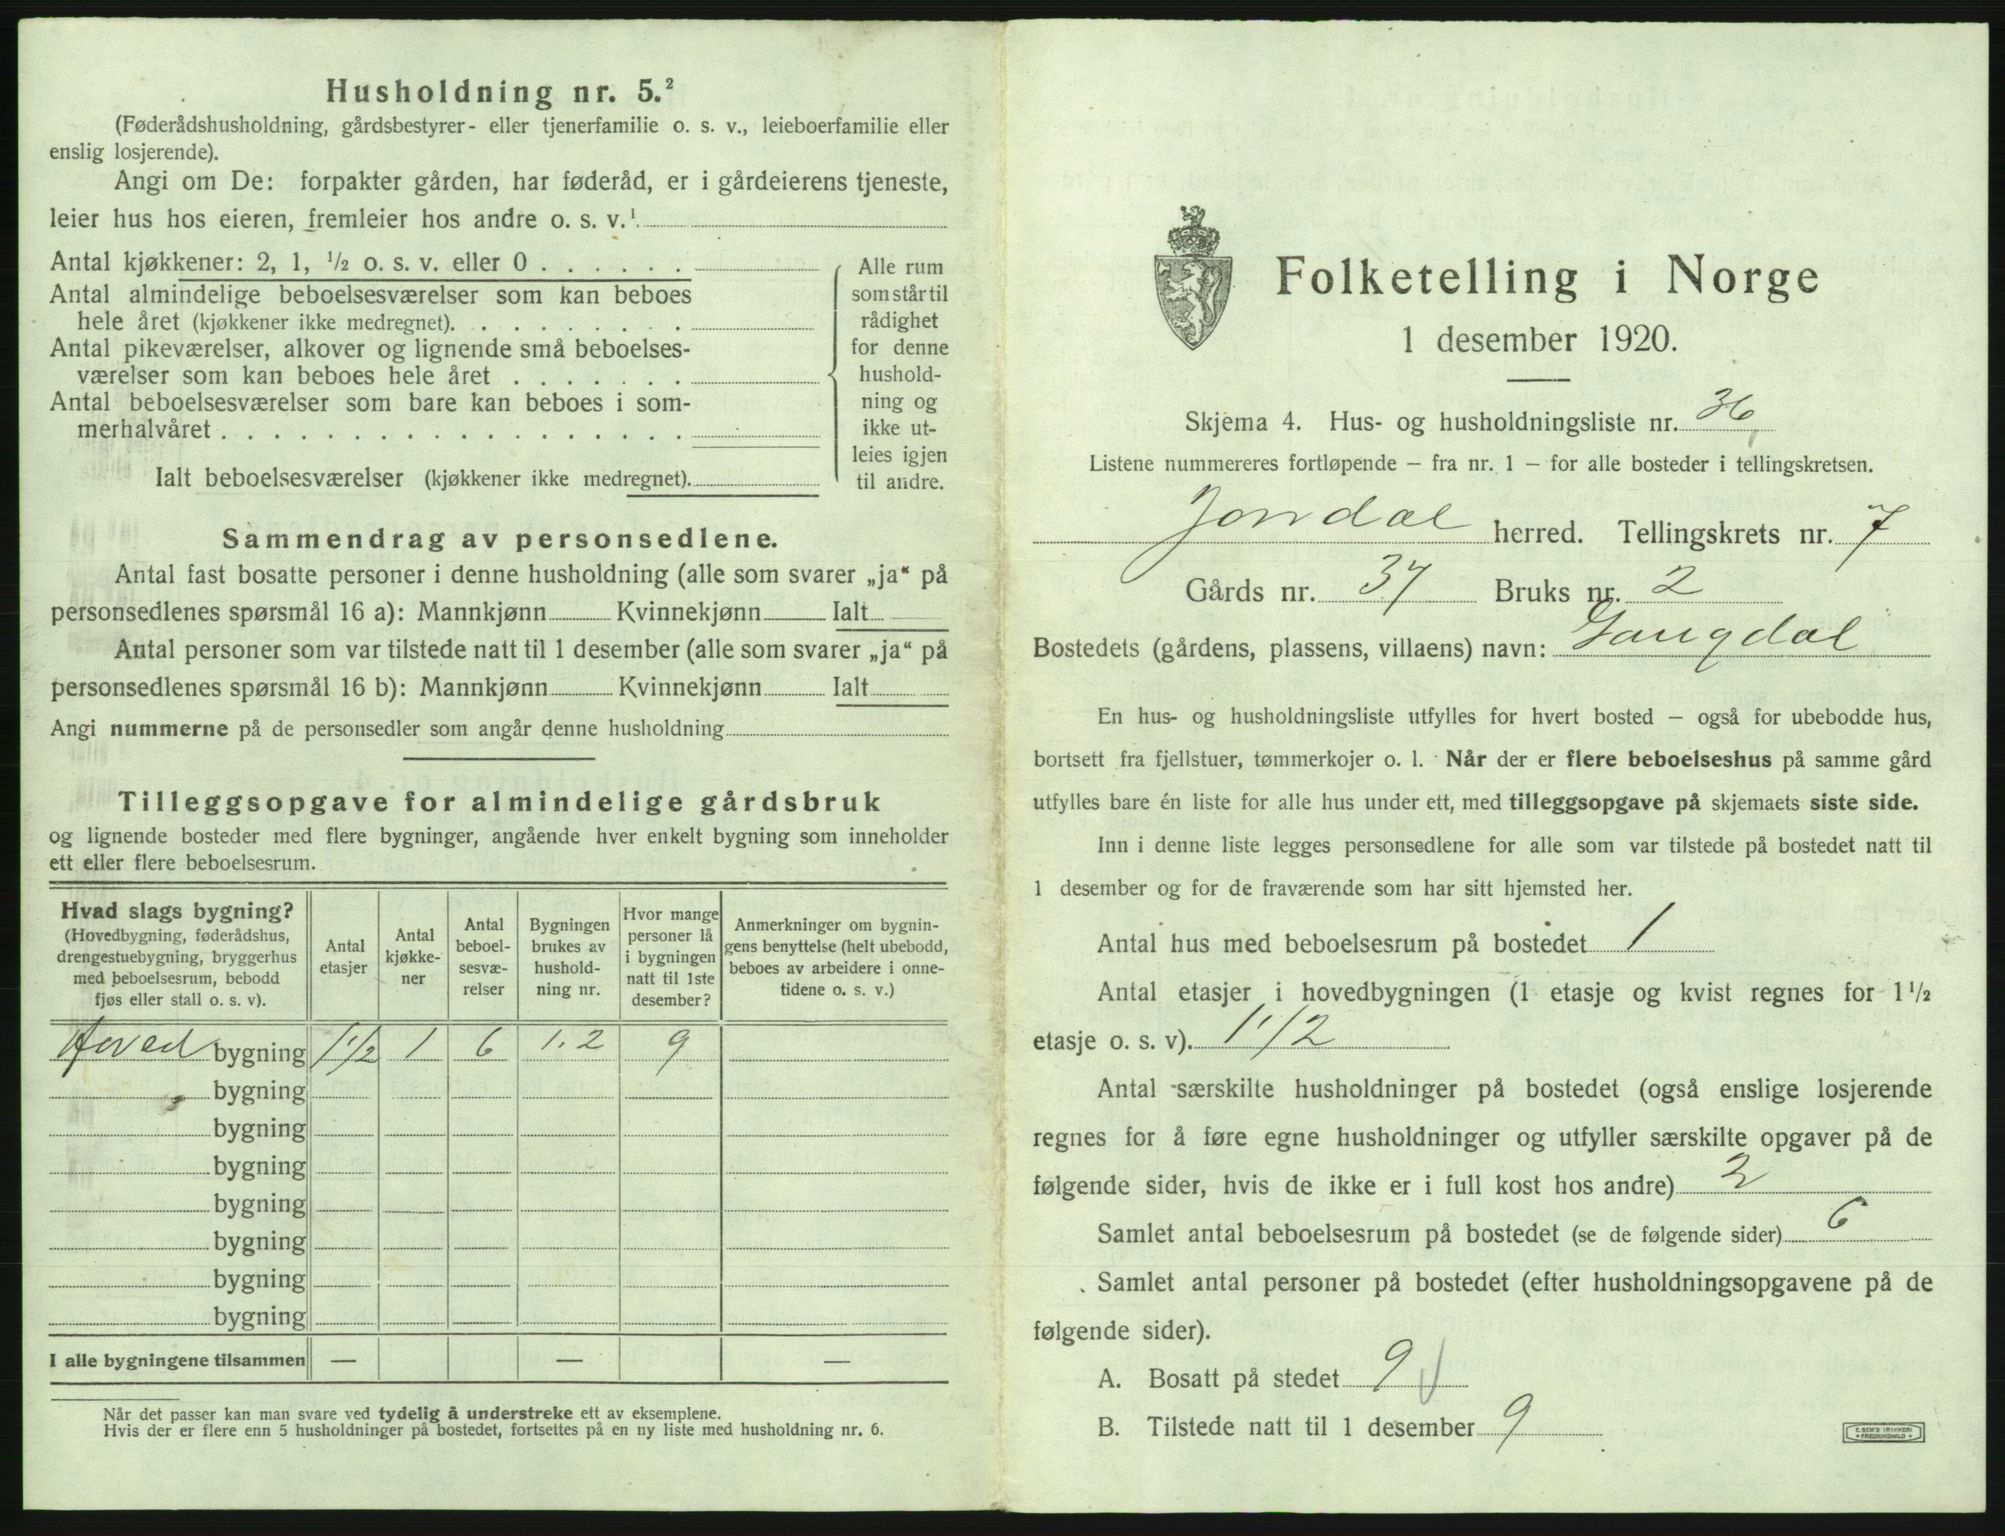 Husholdning nr. 5.²
(Føderådshusholdning, gårdsbestyrer- eller tjenerfamilie o. s. v., leieboerfamilie eller
enslig losjerende).
Angi om De: forpakter gården, har føderåd, er i gårdeierens tjeneste,
leier hus hos eieren, fremleier hos andre o. s. v.¹
Antal kjøkkener: 2, 1, ½ o. s. v. eller 0 . . . . . .
Antal almindelige beboelsesværelser som kan beboes
hele året (kjøkkener ikke medregnet). . . . . . . . .
Antal pikeværelser, alkover og lignende små beboelses-
værelser som kan beboes hele året . . . . . . .
Antal beboelsesværelser som bare kan beboes i som-
merhalvåret . . . . . . . . . . . . . . . . . .
Ialt beboelsesværelser (kjøkkener ikke medregnet).
Alle rum
som står til
rådighet
for denne
hushold-
ning og
ikke ut-
leies igjen
til andre.
Sammendrag av personsedlene.
Antal fast bosatte personer i denne husholdning (alle som svarer „ja“ på
personsedlenes spørsmål 16 a): Mannkjønn Kvinnekjønn Ialt
Antal personer som var tilstede natt til 1 desember (alle som svarer „ja“ på
personsedlenes spørsmål 16 b): Mannkjønn Kvinnekjønn Ialt
Angi nummerne på de personsedler som angår denne husholdning
Tilleggsopgave for almindelige gårdsbruk
og lignende bosteder med flere bygninger, angående hver enkelt bygning som inneholder
ett eller flere beboelsesrum.
Hvad slags bygning?
(Hovedbygning, føderådshus,
drengestuebygning, bryggerhus
med beboelsesrum, bebodd
fjøs eller stall o. s. v).
Antal
etasjer
Antal
kjøkke-
ner
Antal
beboel-
sesvæ-
relser
Bygningen
brukes av
hushold-
ning nr.
Hvor mange
personer lå
i bygningen
natt til 1ste
desember?
Anmerkninger om bygnin-
gens benyttelse (helt ubebodd,
beboes av arbeidere i onne-
tidene o. s. v.)
Hoved bygning 1 1/2 1 6 1. 2 9
bygning
bygning
bygning
bygning
bygning
bygning
bygning
I alle bygningene tilsammen — — —
Når det passer kan man svare ved tydelig å understreke ett av eksemplene.
Hvis der er flere enn 5 husholdninger på bostedet, fortsettes på en ny liste med husholdning nr. 6.
Folketelling i Norge
1 desember 1920.
Skjema 4. Hus- og husholdningsliste nr. 36
Listene nummereres fortløpende – fra nr. 1 – for alle bosteder i tellingskretsen.
Jondal herred. Tellingskrets nr. 7
Gårds nr. 37 Bruks nr. 2
Bostedets (gårdens, plassens, villaens) navn:
En hus- og husholdningsliste utfylles for hvert bosted – også for ubebodde hus,
bortsett fra fjellstuer, tømmerkojer o. l. Når der er flere beboelseshus på samme gård
utfylles bare én liste for alle hus under ett, med tilleggsopgave på skjemaets siste side.
Inn i denne liste legges personsedlene for alle som var tilstede på bostedet natt til
1 desember og for de fraværende som har sitt hjemsted her.
Antal hus med beboelsesrum på bostedet 1
Antal etasjer i hovedbygningen (1 etasje og kvist regnes for 1½
etasje o. s. v). 1 1/2
Antal særskilte husholdninger på bostedet (også enslige losjerende
regnes for å føre egne husholdninger og utfyller særskilte opgaver på de
følgende sider, hvis de ikke er i full kost hos andre) 2
Samlet antal beboelsesrum på bostedet (se de følgende sider) 6
Samlet antal personer på bostedet (efter husholdningsopgavene på de
følgende sider).
A. Bosatt på stedet 9
B. Tilstede natt til 1 desember 9
E. SEM'S TRYKKERI
FREDRIKSHALD